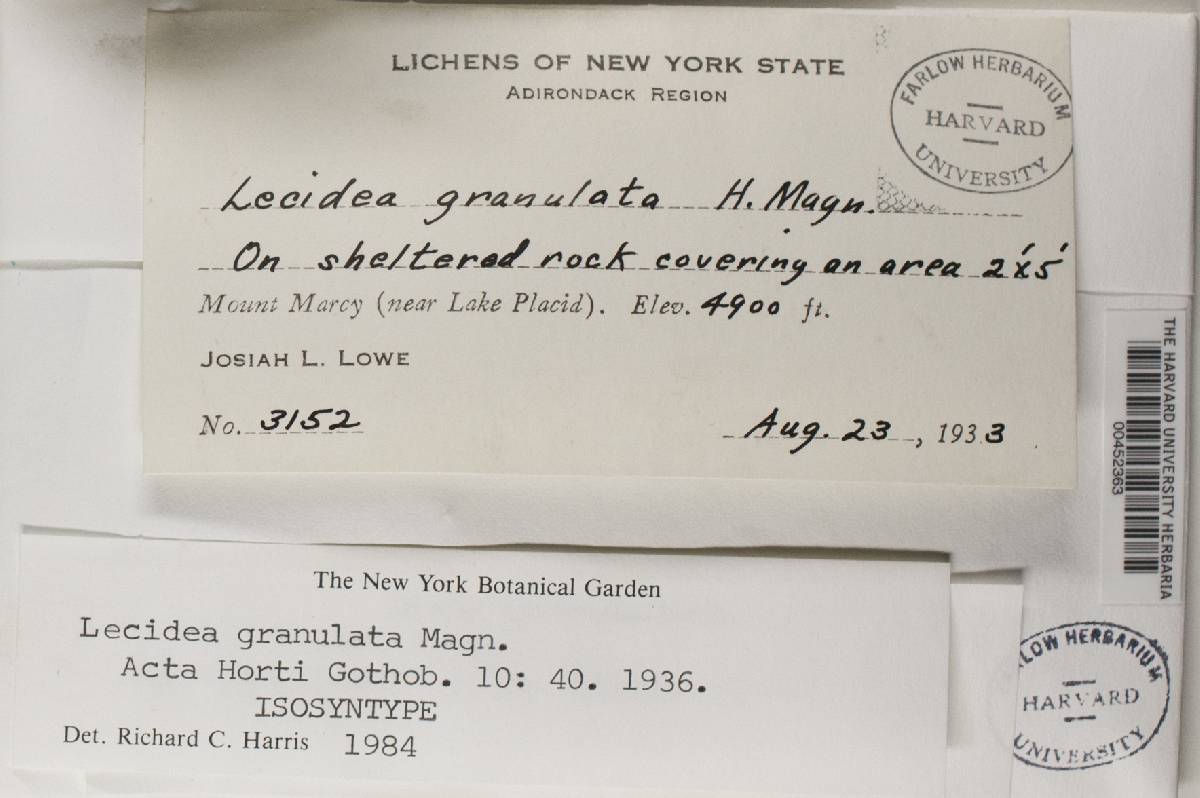 LICHENS OF NEW YORK STATE
ADIRONDACK REGION
FARLOW HERBARIUM
HARVARD
UNIVERSITY
Lecidea granulata H. Magn.
On sheltered rock covering an area 2'x5'
Mount Marcy (near Lake Placid). Elev. 4900 ft.
JOSIAH L. LOWE
No. 3152 Aug. 23, 1933
THE HARVARD UNIVERSITY HERBARIA
00452363
The New York Botanical Garden
Lecidea granulata Magn.
Acta Horti Gothob. 10: 40. 1936.
ISOSYNTYPE
Det. Richard C. Harris 1984
LOW HERBARIUM
HARVARD
UNIVERSITY